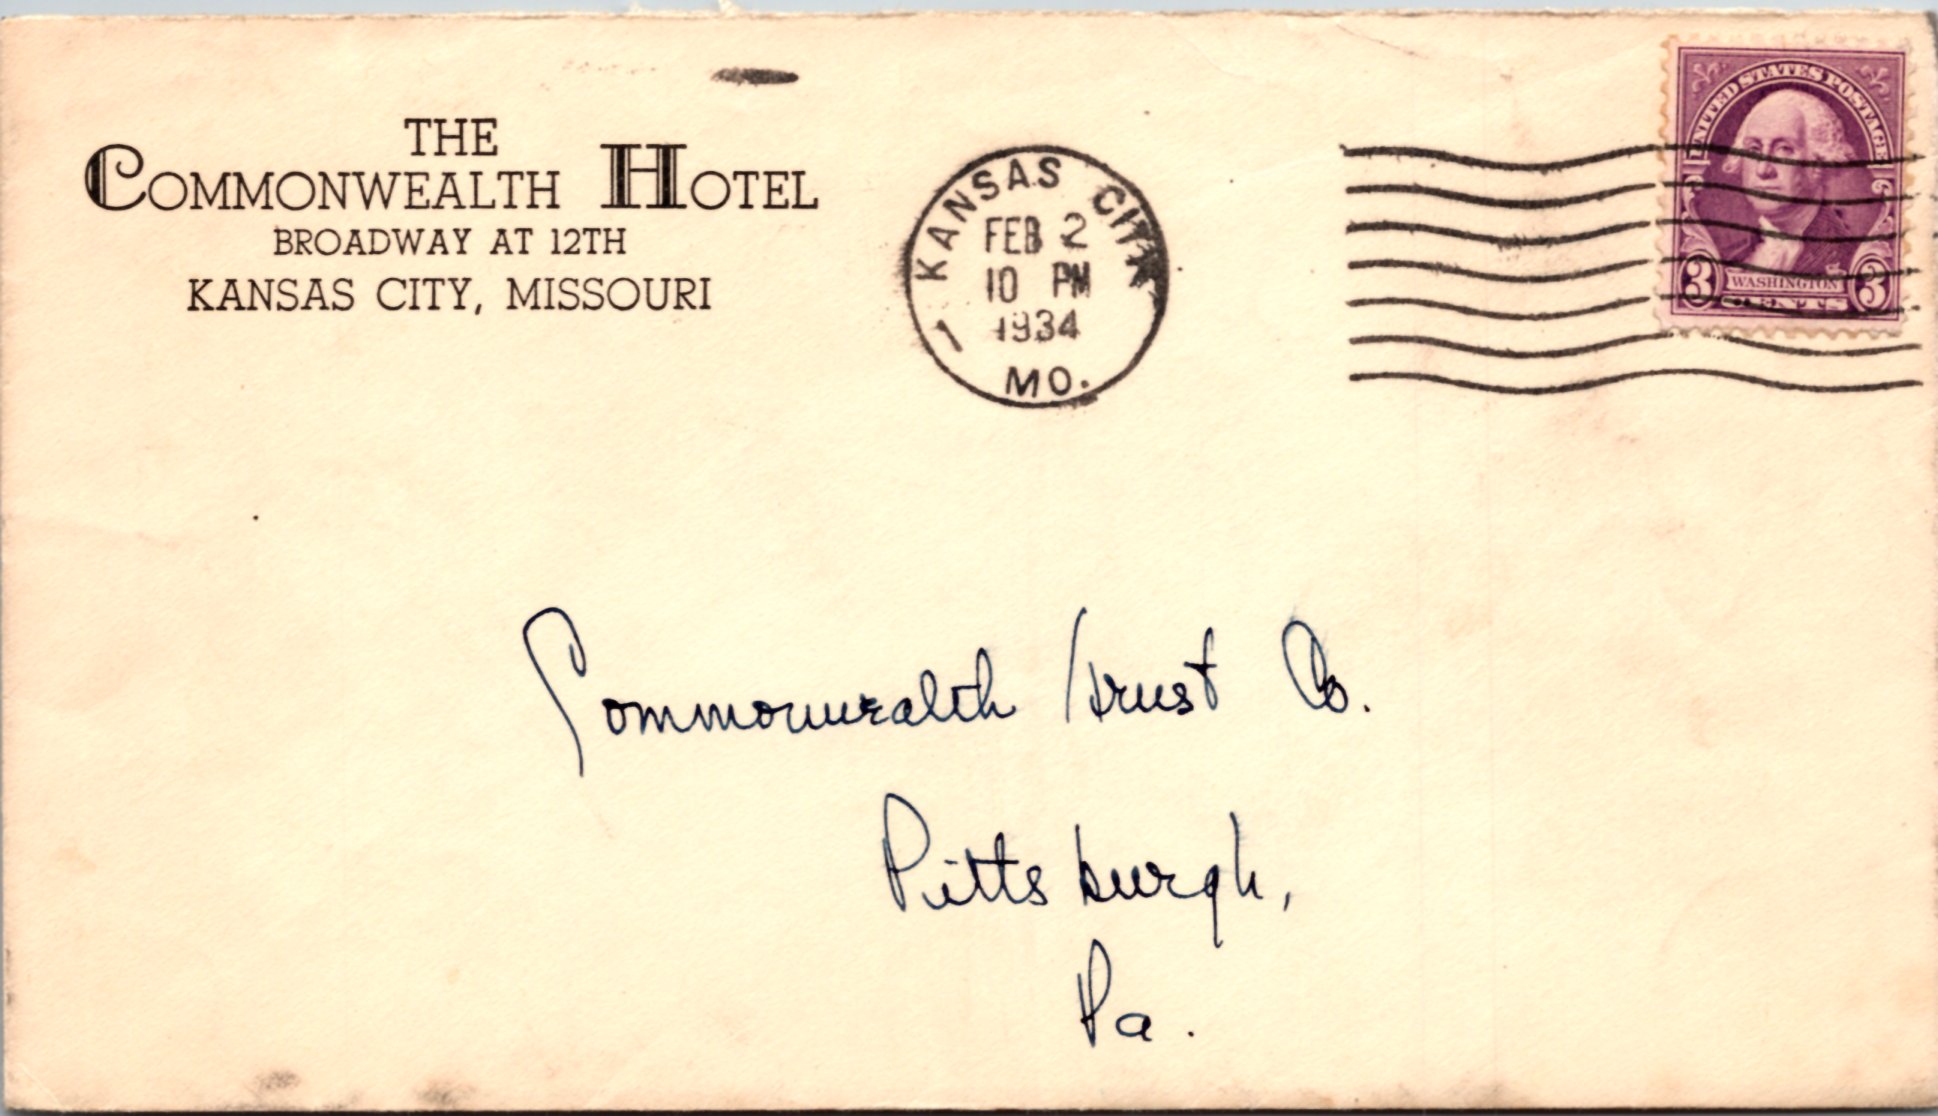 THE
COMMONWEALTH HOTEL
BROADWAY AT 12TH
KANSAS CITY, MISSOURI
KANSAS CITY
FEB 2
10 PM
1934
1
MO.
UNITED STATES POSTAGE
3 WASHINGTON 3
CENTS
Commonwealth Trust Co.
Pittsburgh,
Pa.